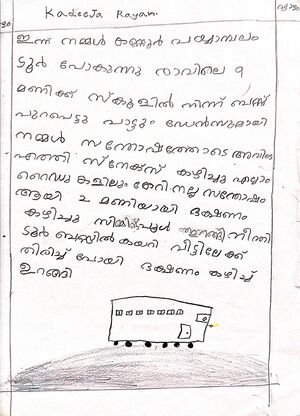 Kadeeja Rayan
ഇന്ന് നമ്മൾ കണ്ണൂർ പയ്യാമ്പലം
ടൂർ പോകുന്നു രാവിലെ 9
മണിക്ക് സ്കൂളിൽ നിന്ന് ബസ്സ്
പുറപെട്ടു പാട്ടും ഡേൻസുമായി
നമ്മൾ സന്തോഷത്തോടെ അവിടെ
എത്തി സ്നേക്സ് കഴിച്ചു എല്ലാം
റൈഡുകളിലും കേറി നല്ല സന്തോഷം
ആയി 2 മണിയായി ഭക്ഷണം
കഴിച്ചു സിമ്മിട്പൂൾ ഇറങ്ങി നീന്തി
ടൂർ ബസ്സിൽ കയറി വീട്ടിലേക്ക്
തിരിച്ച് പോയി ഭക്ഷണം കഴിച്ച്
ഉറങ്ങി